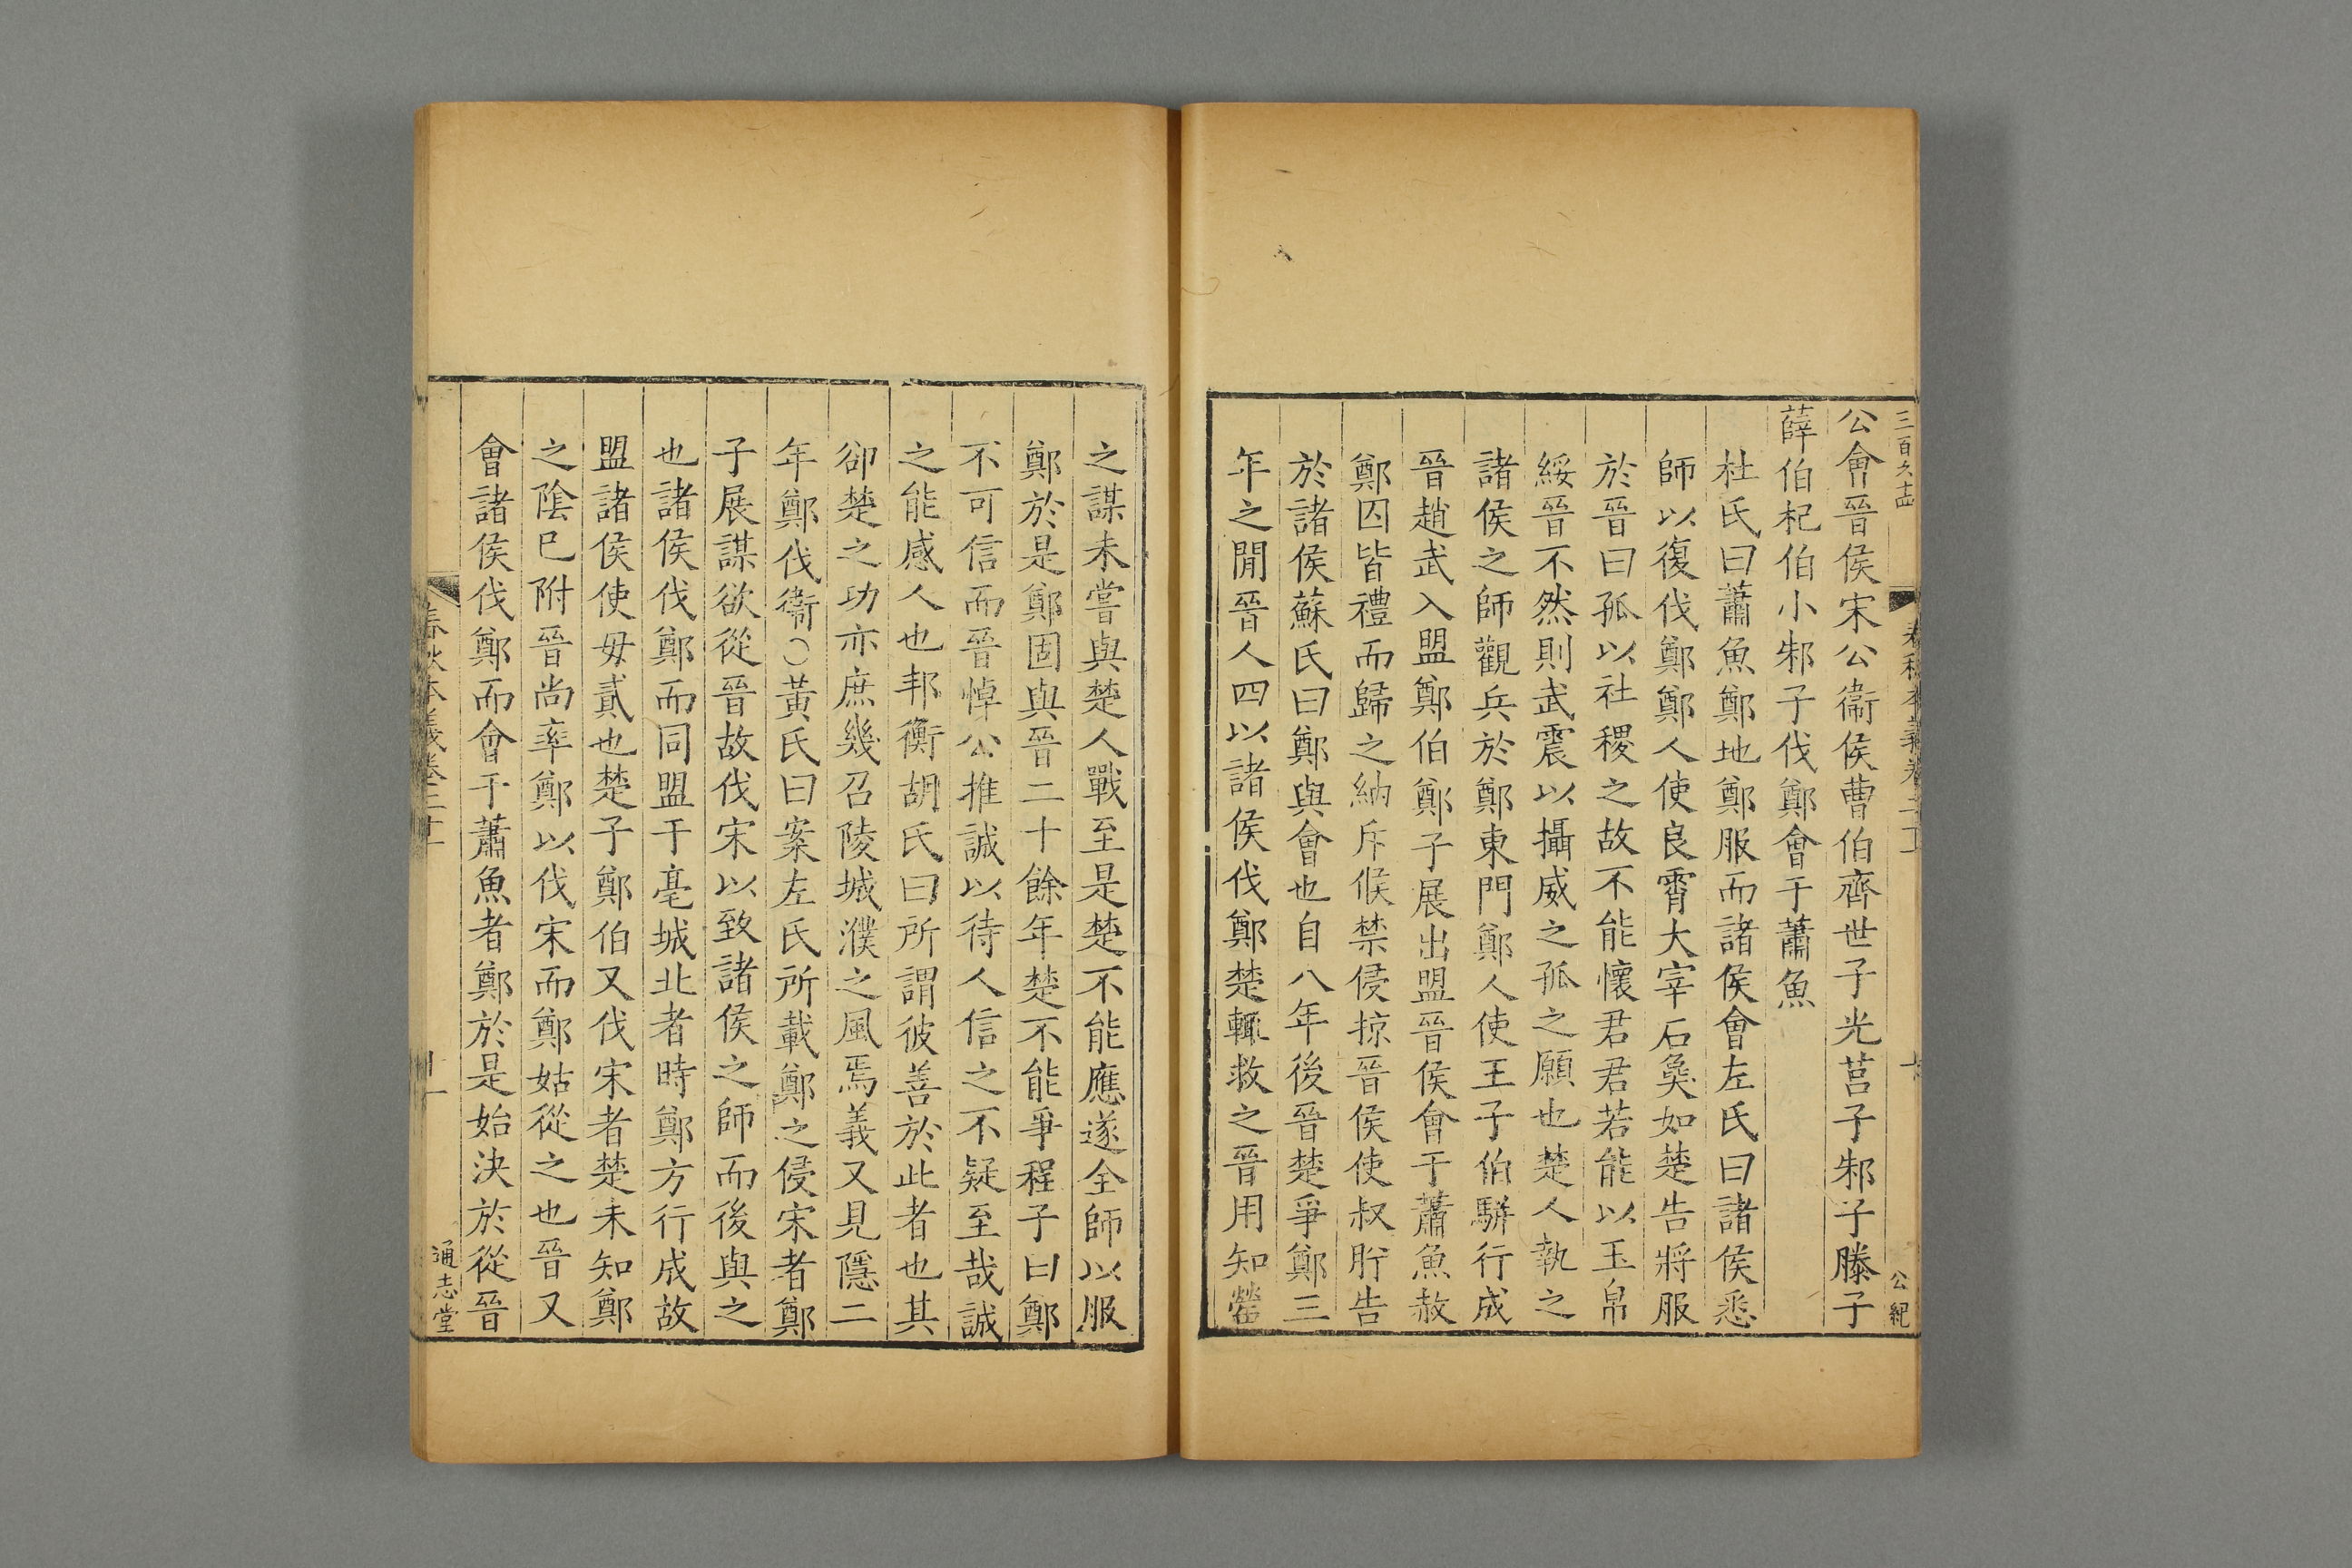 公會晉侯宋公衞侯曹伯齊世子光莒子邾子滕子
薛伯杞伯小邾子伐鄭會于蕭魚
杜氏曰蕭魚鄭地鄭服而諸侯會左氏曰諸侯悉
師以復伐鄭鄭人使良霄大宰石㚟如楚告將服
於晉曰孤以社稷之故不能懷君君若能以玉帛
綏晉不然則武震以攝威之孤之願也楚人執之
諸侯之師觀兵於鄭東門鄭人使王子伯駢行成
晉趙武入盟鄭伯鄭子展出盟晉侯會于蕭魚赦
鄭囚皆禮而歸之納斥候禁侵掠晉侯使叔肸告
於諸侯蘇氏曰鄭與會也自八年後晉楚爭鄭三
年之閒晉人四以諸侯伐鄭楚輒救之晉用知罃
之謀未嘗與楚人戰至是楚不能應遂全師以服
鄭於是鄭固與晉二十餘年楚不能爭程子曰鄭
不可信而晉悼公推誠以待人信之不疑至哉誠
之能感人也邦衡胡氏曰所謂彼善於此者也其
卻楚之功亦庶幾召陵城濮之風焉義又見隱二
年鄭伐衞○黃氏曰案左氏所載鄭之侵宋者鄭
子展謀欲從晉故伐宋以致諸侯之師而後與之
也諸侯伐鄭而同盟于亳城北者時鄭方行成故
盟諸侯使毋貳也楚子鄭伯又伐宋者楚未知鄭
之陰已附晉尚率鄭以伐宋而鄭姑從之也晉又
會諸侯伐鄭而會于蕭魚者鄭於是始決於從晉
春秋本義卷二十
通志堂